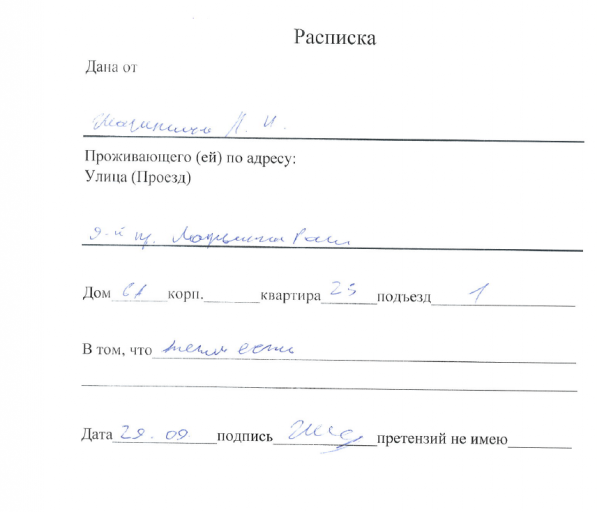 Расписка
Дана от
А. И.
Проживающего (ей) по адресу:
Улица (Проезд)
9-й пр. Марьиной Рощи
Дом корп. квартира 23 подъезд 1
В том, что тепло есть
Дата 29.09. подпись претензий не имею